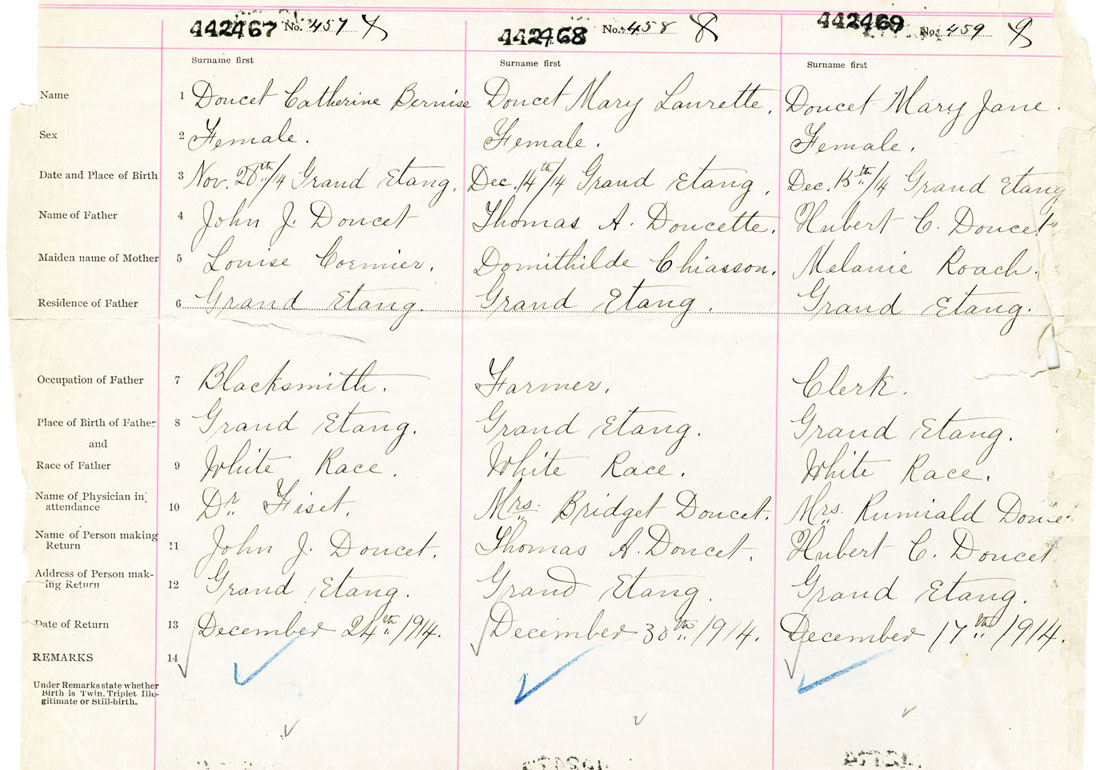 442467 No. 457 442468 No. 458 442469 No. 459
Surname first Surname first Surname first
Name 1 Doucet Catherine Bernise Doucet Mary Laurette. Doucet Mary Jane.
Sex 2 Female. Female. Female.
Date and Place of Birth 3 Nov. 20th/14 Grand Etang. Dec. 14th/14 Grand Etang. Dec. 15th/14 Grand Etang
Name of Father 4 John J. Doucet Thomas A. Doucette. Hubert C. Doucet
Maiden name of Mother 5 Louise Cormier. Domithilde Chiasson. Melanie Roach.
Residence of Father 6 Grand Etang. Grand Etang. Grand Etang.
Occupation of Father 7 Blacksmith. Farmer. Clerk.
Place of Birth of Father 8 Grand Etang. Grand Etang. Grand Etang.
and
Race of Father 9 White Race. White Race. White Race.
Name of Physician in
attendance 10 Dr. Fiset. Mrs. Bridget Doucet. Mrs. Rumiald
Name of Person making
Return 11 John J. Doucet. Thomas A. Doucet. Hubert C. Doucet
Address of Person mak-
ing Return 12 Grand Etang. Grand Etang. Grand Etang.
Date of Return 13 December 24th 1914. December 30th 1914. December 17th 1914.
REMARKS 14
Under Remarks state whether
Birth is Twin, Triplet Ille-
gitimate or Still-birth.